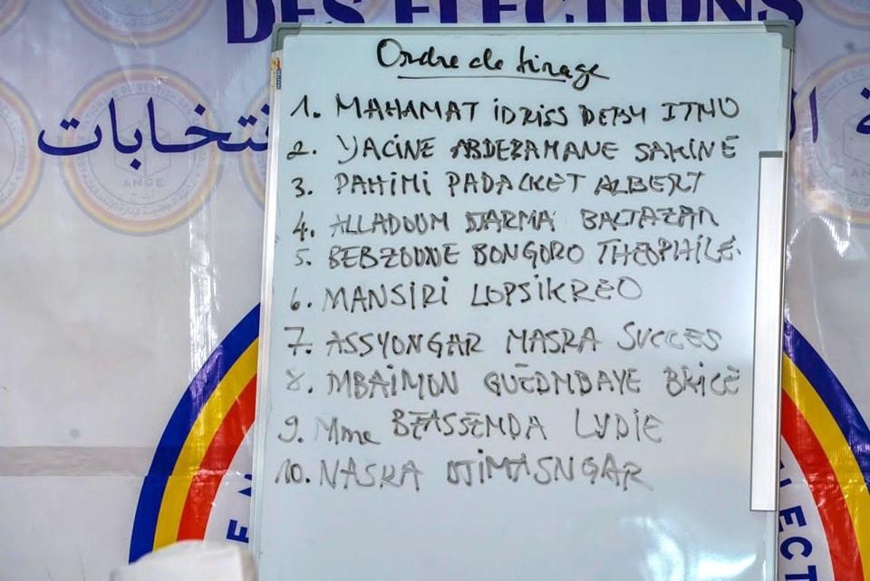 DES ELECTIONS
Ordre de tirage
1. MAHAMAT IDRISS DEBY ITNO
2. YACINE ABDERAMANE SAKINE
3. PAHIMI PADACKET ALBERT
4. ALLADOUM DJARMA BALTAZAR
5. BEBZOUNE BONGORO THEOPHILE
6. MANSIRI LOPSIKREO
7. ASSYONGAR MASRA SUCCES
8. MBAIMON GUEDMBAYE BRICE
9. Mme BEASSEMDA LYDIE
10. NASRA DJIMASNGAR
ANGE